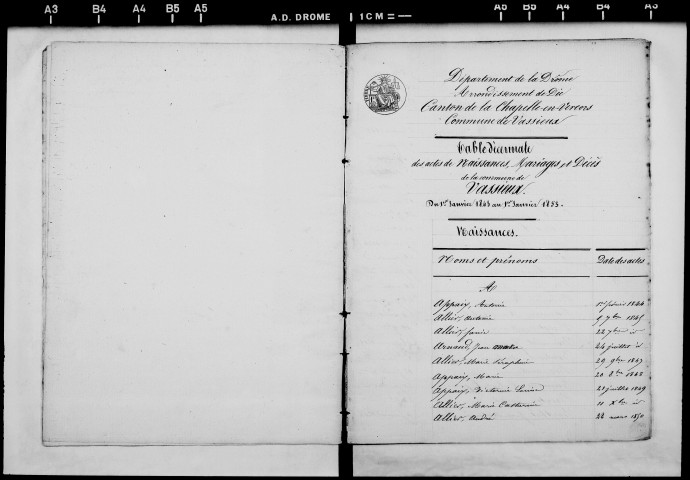 A3 B4 A4 B5 A5 A.D. DROME 1 CM = A5 B5 A4 B4 A3
Département de la Drôme
Arrondissement de Die
Canton de la Chapelle-en-Vercors
Commune de Vassieux
Table Décennale
des actes de Naissances, Mariages, et Décès
de la commune de
Vassieux.
Du 1er Janvier 1843 au 1er Janvier 1853.
Naissances.
Noms et prénoms Date des actes
A
Appaix, Antonin 1er février 1844
Allier, Antonin 9 7bre 1845
Allier, 22 7bre id
Arnaud, Jean 24 juillet id
Allier, Marie Séraphine 29 9bre 1847
Appaix, Marie 20 8bre 1848
Appaix, Victorine 27 juillet 1849
Allier, Marie 11 Xbre id
Allier, André 22 mars 1850